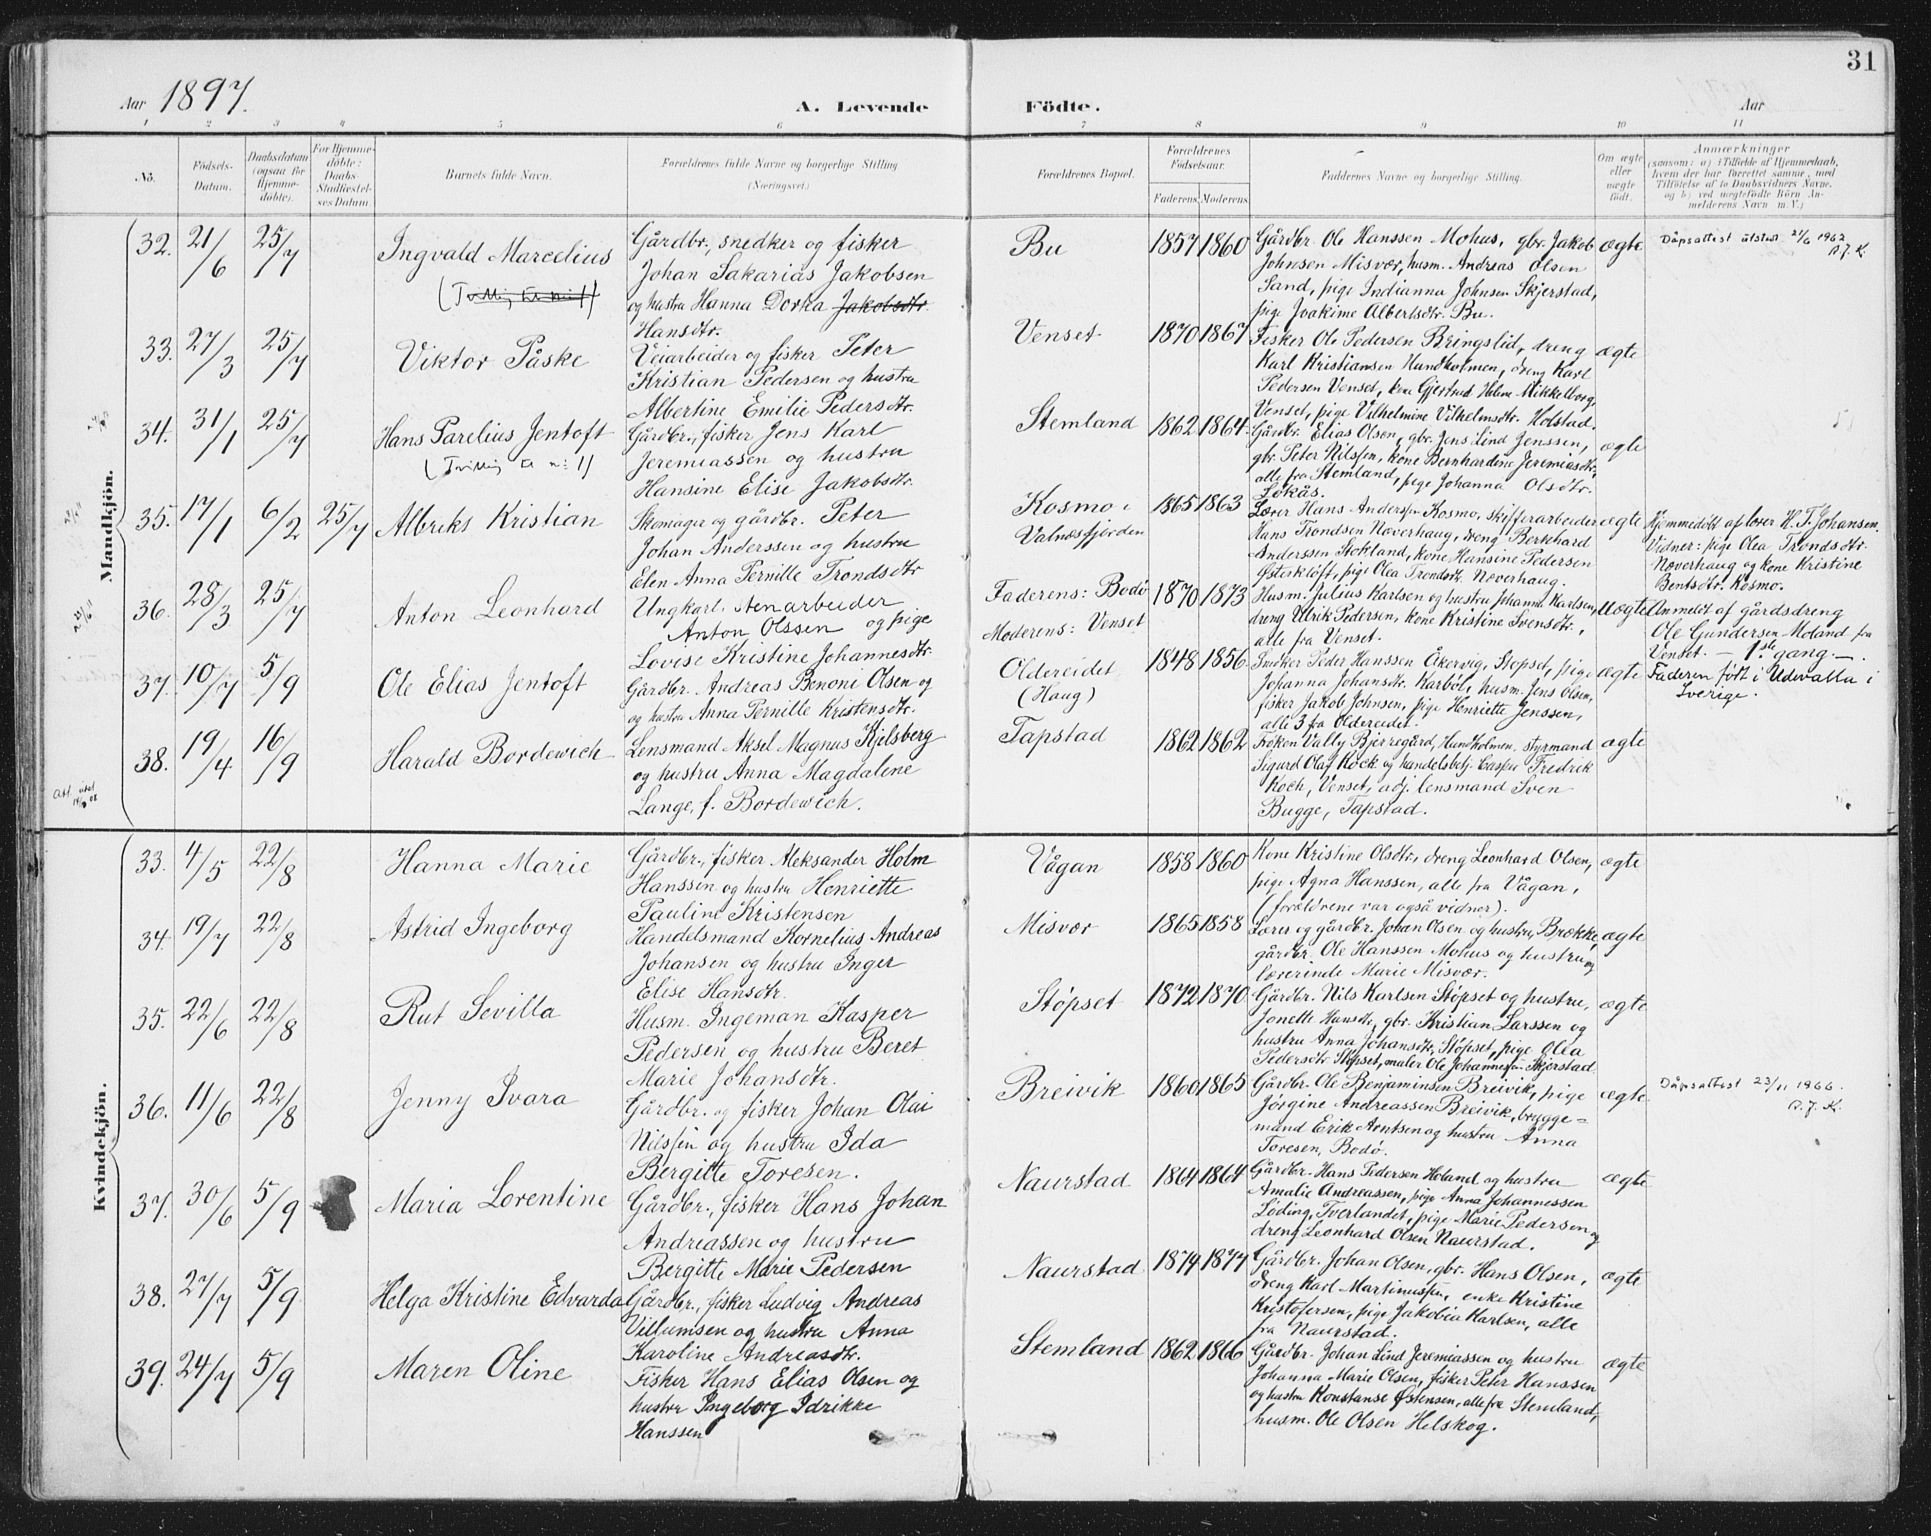 31
Aar 1897.
A. Levende Födte.
Aar
1 2 3 4 5 6 7 8 9 10 11
No.
Födsels-Datum.
Daabsdatum (ogsaa for Hjemmedöbte).
For Hjemmedöbte: Daabs-Stadfæstelses Datum
Barnets fulde Navn.
Forældrenes fulde Navne og borgerlige Stilling.
(Næringsvei.)
Forældrenes Bopæl.
Forældrenes Födselsaar.
Faderens. Moderens.
Faddernes Navne og borgerlige Stilling.
Om ægte eller uægte födt.
Anmærkninger
(saasom: a) i Tilfælde af Hjemmedaab,
hvem der har forrettet samme, med
Tilföielse af to Daabsvidners Navne,
og b) ved uægtefödte Börn An-
melderens Navn m. V.)
Mandkjön.
32. 21/6 25/7
Ingvald Marcelius
(Tvilling til no 1)
Gårdbr., snedker og fisker
Johan Sakarias Jakobsen
og hustru Hanna Dorka Jakobsdtr.
Hansdtr.
Bu
1857 1860
Gårdbr. Ole Hanssen Mohus, gbr. Jakob
Johnsen Misvær, husm. Andreas Olsen
Sand, pige Indianna Johnsen Skjerstad,
pige Joakime Albertsdtr. Bu.
ægte
Dåpsattest utstedt 21/6 1962
R.J.K.
33. 27/3 25/7
Viktor Påske
Veiarbeider og fisker Peter
Kristian Pedersen og hustru
Albertine Emilie Pedersdtr.
Venset
1870 1867
Fisker Ole Pedersen Bringslid, dreng
Karl Kristiansen Hundholmen, dreng Karl
Pedersen Venset, kone Gjertrud Helene Mikkelborg,
Venset, pige Vilhelmine Vilhelmsdtr. Holstad.
ægte
34. 31/1 25/7
Hans Parelius Jentoft
(Tvilling til no: 1)
Gårdbr., fisker Jens Karl
Jeremiassen og hustru
Hansine Elise Jakobsdtr.
Stemland
1862 1864
Gårdbr. Elias Olsen, gbr. Jens Lind Jenssen,
gbr. Peter Nilssen, kone Bernhardine Jeremiasdtr.,
alle fra Stemland, pige Johanna Olsdtr.
Løkås.
ægte
35. 17/1 6/2 25/7
Albriks Kristian
Skomager og gårdbr. Peter
Johan Anderssen og hustru
Elen Anna Pernille Trondsdtr
Kosmo i
Valnesfjorden
1865 1863
Lærer Hans Anderssen Kosmo, skifferarbeider
Hans Trondsen Næverhaug, dreng Berthard
Anderssen Stokland, kone Hansine Pedersen
Østerkløft, pige Olea Trondsdtr. Næverhaug.
ægte
Hjemmedøbt af lærer H. T. Johansen.
Vidner: pige Olea Trondsdtr.
Næverhaug og kone Kristine
Bentsdtr. Kosmo.
36. 28/3 25/7
Anton Leonhard
Ungkarl, stenarbeider
Anton Olssen og pige
Lovise Kristine Johannesdtr.
Faderens: Bodø
Moderens: Venset
1870 1873
Husm. Julius Karlsen og hustru Johanna Karlsen,
dreng Ulrik Pedersen, kone Kristine Svensdtr.,
alle fra Venset.
uægte
Anmeldt af gårdsdreng
Ole Gundersen Moland fra
Venset. – 1ste gang –.
Faderen født i Udevalla i
Sverige.
37. 10/7 5/9
Ole Elias Jentoft
Gårdbr. Andreas Benoni Olsen og
og hustru Anna Pernille Kristensdtr.
Oldereidet
(Haug)
1848 1856
Smøker Peder Hanssen Åkervig, Støpset, pige
Johanna Johansdtr. Karbøl, husm. Jens Olsen,
fisker Jakob Johnsen, pige Henriette Jenssen,
alle 3 fra Oldereidet.
ægte
38. 19/4 16/9
Harald Bordewich
Lensmand Aksel Magnus Kjelsberg
og hustru Anna Magdalene
Lange, f. Bordewich.
Tapstad
1862 1862
Frøken Vally Bjerregård, Hundholmen, styrmand
Sigurd Olaf Koch og handelsbetj. Casper Fredrik
Koch, Venset, adj. lensmand Sven
Bugge, Tapstad.
ægte
Kvindekjön.
33. 4/5 22/8
Hanna Marie
Gårdbr., fisker Aleksander Holm
Hanssen og hustru Henriette
Pauline Kristensen
Vågan
1858 1860
Kone Kristine Olsdtr., dreng Leonhard Olsen,
pige Agna Hanssen, alle fra Vågan,
(forældrene var også vidner).
ægte
34. 19/7 22/8
Astrid Ingeborg
Handelsmand Kornelius Andreas
Johansen og hustru Inger
Elise Hansdtr.
Misvær
1865 1858
Lærer og gårdbr. Johan Olsen og hustru, Brække,
gårdbr. Ole Hanssen Mohus og hustru og
lærerinde Marie Misvær.
ægte
35. 22/6 22/8
Rut Sevilla
Husm. Ingeman Kasper
Pedersen og hustru Beret
Marie Johansdtr.
Støpset
1872 1870
Gårdbr. Nils Karlsen Støpset og hustru,
Jonette Hansdtr, gbr. Kristian Larssen og
hustru Anna Johansdtr, Støpset, pige Olea
Pedersdtr Støpset, maler Ole Johannessen Skjerstad.
ægte
36. 11/6 22/8
Jenny Ivara
Gårdbr. og fisker Johan Olai
Nilssen og hustru Ida
Bergitte Toresen.
Breivik
1860 1865
Gårdbr. Ole Benjaminsen Breivik, pige
Jørgine Andreassen Breivik, brygge=
mand Erik Arntsen og hustru Anna
Toresen, Bodø.
ægte
Dåpsattest 23/11 1966.
R.J.K.
37. 30/6 5/9
Maria Lorentine
Gårdbr., fisker Hans Johan
Andreassen og hustru
Bergitte Marie Pedersen
Naurstad
1864 1864
Gårdbr. Hans Pedersen Høland og hustru
Amalie Andreassen, pige Anna Johannessen
Løding, Tverlandet, pige Marie Pedersen og
dreng Leonhard Olsen Naurstad.
ægte
38. 27/7 5/9
Helga Kristine Edvarda
Gårdbr., fisker Ludvig Andreas
Villumsen og hustru Anna
Karoline Andreasdtr.
Naurstad
1874 1874
Gårdbr. Johan Olsen, gbr. Hans Olsen,
dreng Karl Martinussen, enke Kristine
Kristofersen, pige Jakobia Karlsen, alle
fra Naurstad.
ægte
39. 24/7 5/9
Maren Oline
Fisker Hans Elias Olsen og
hustru Ingeborg Idrikke
Hanssen
Stemland
1862 1866
Gårdbr. Johan Lind Jeremiassen og hustru
Johanna Marie Olsen, fisker Peter Hanssen
og hustru Konstanse Østensen, alle fra Stemland,
husm. Ole Olsen Helskog.
ægte